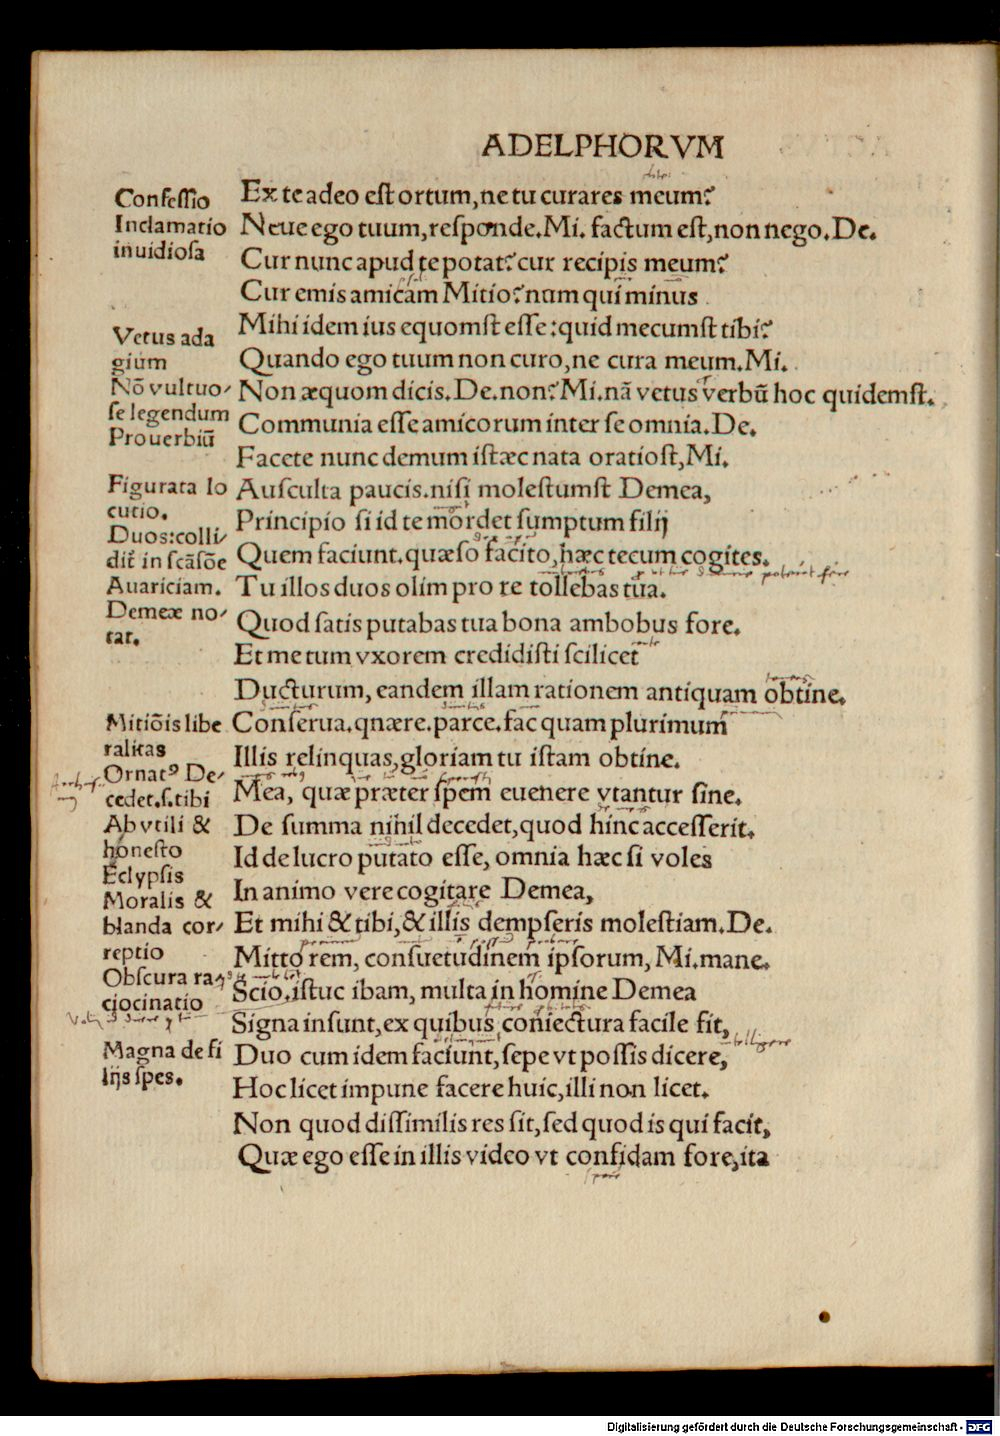 ADELPHORVM
Confessio
Inclamatio
inuidiosa
Ex te adeo est ortum, ne tu curares meum?
Neue ego tuum, responde. Mi. factum est, non nego. De.
Cur nunc apud te potat? cur recipis meum?
Cur emis amicam Mitio? num qui minus
Mihi idem ius equomst esse: quid mecumst tibi?
Vetus ada
gium
Nō vultuo-
se legendum
Prouerbiū
Quando ego tuum non curo, ne cura meum. Mi.
Non æquom dicis. De. non? Mi. nā vetus verbū hoc quidemst.
Communia esse amicorum inter se omnia. De.
Facete nunc demum istæc nata oratiost, Mi.
Figurata lo
cutio.
Duos: colli-
dit in scāsōe
Auariciam.
Demeæ no-
tat.
Ausculta paucis. nisi molestumst Demea,
Principio si id te mordet sumptum filij
Quem faciunt. quæso facito, hæc tecum cogites.
Tu illos duos olim pro re tollebas tua.
Quod satis putabas tua bona ambobus fore.
Et me tum vxorem credidisti scilicet
Ducturum, eandem illam rationem antiquam obtine.
Mitiōis libe
ralitas
Ornatꝰ De-
cedet. s. tibi
Ab vtili &
honesto
Eclypsis
Moralis &
blanda cor-
reptio
Obscura ra-
ciocinatio
Conserua. qnære. parce. fac quam plurimum
Illis relinquas, gloriam tu istam obtine.
Mea, quæ præter spem euenere vtantur sine.
De summa nihil decedet, quod hinc accesserit.
Id de lucro putato esse, omnia hæc si voles
In animo vere cogitare Demea,
Et mihi & tibi, & illis dempseris molestiam. De.
Mitto rem, consuetudinem ipsorum, Mi. mane.
Scio. istuc ibam, multa in homine Demea
Signa insunt, ex quibus coniectura facile fit,
Magna de fi
lijs spes.
Duo cum idem faciunt, sepe vt possis dicere,
Hoc licet impune facere huic, illi non licet.
Non quod dissimilis res sit, sed quod is qui facit,
Quæ ego esse in illis video vt confidam fore, ita
Digitalisierung gefördert durch die Deutsche Forschungsgemeinschaft - DFG